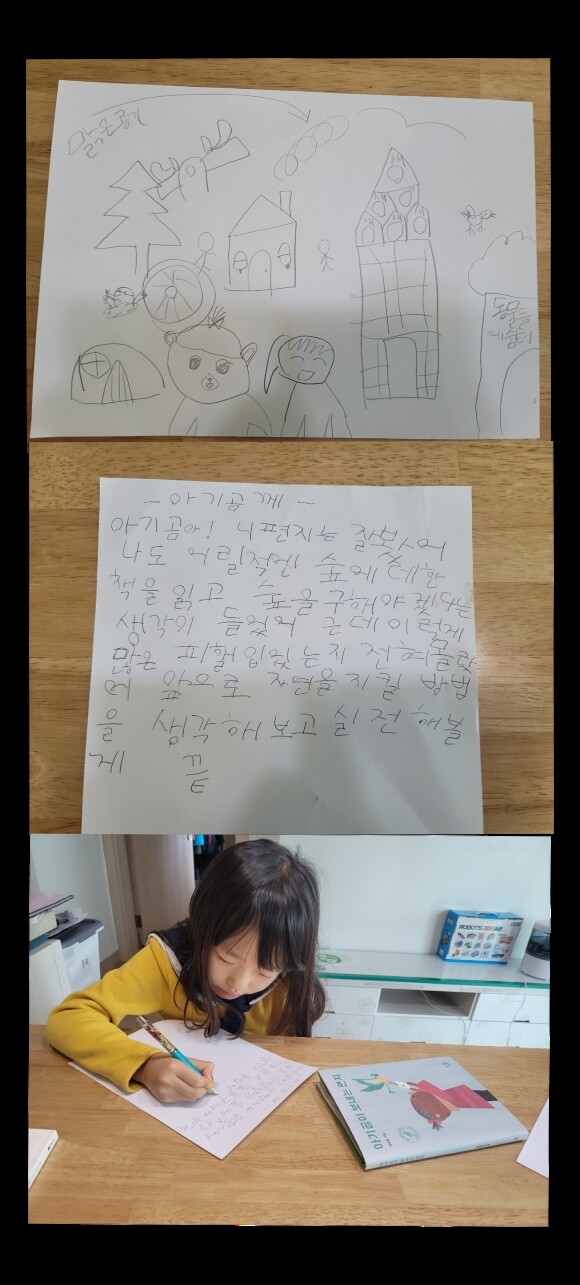 맑은공기
동물들
에쉼터
- 아기곰께 -
아기곰아! 니편지는 잘보았어
나도 어릴적엔 숲에 대한
책을 읽고 숲을 구해야겠다는
생각이 들었어 근데 이렇게
많은 피해 입었는지 전혀몰랐
어 앞으로 자연을 지킬 방법
을 생각해보고 실전해볼
게 끝
ROBOTS